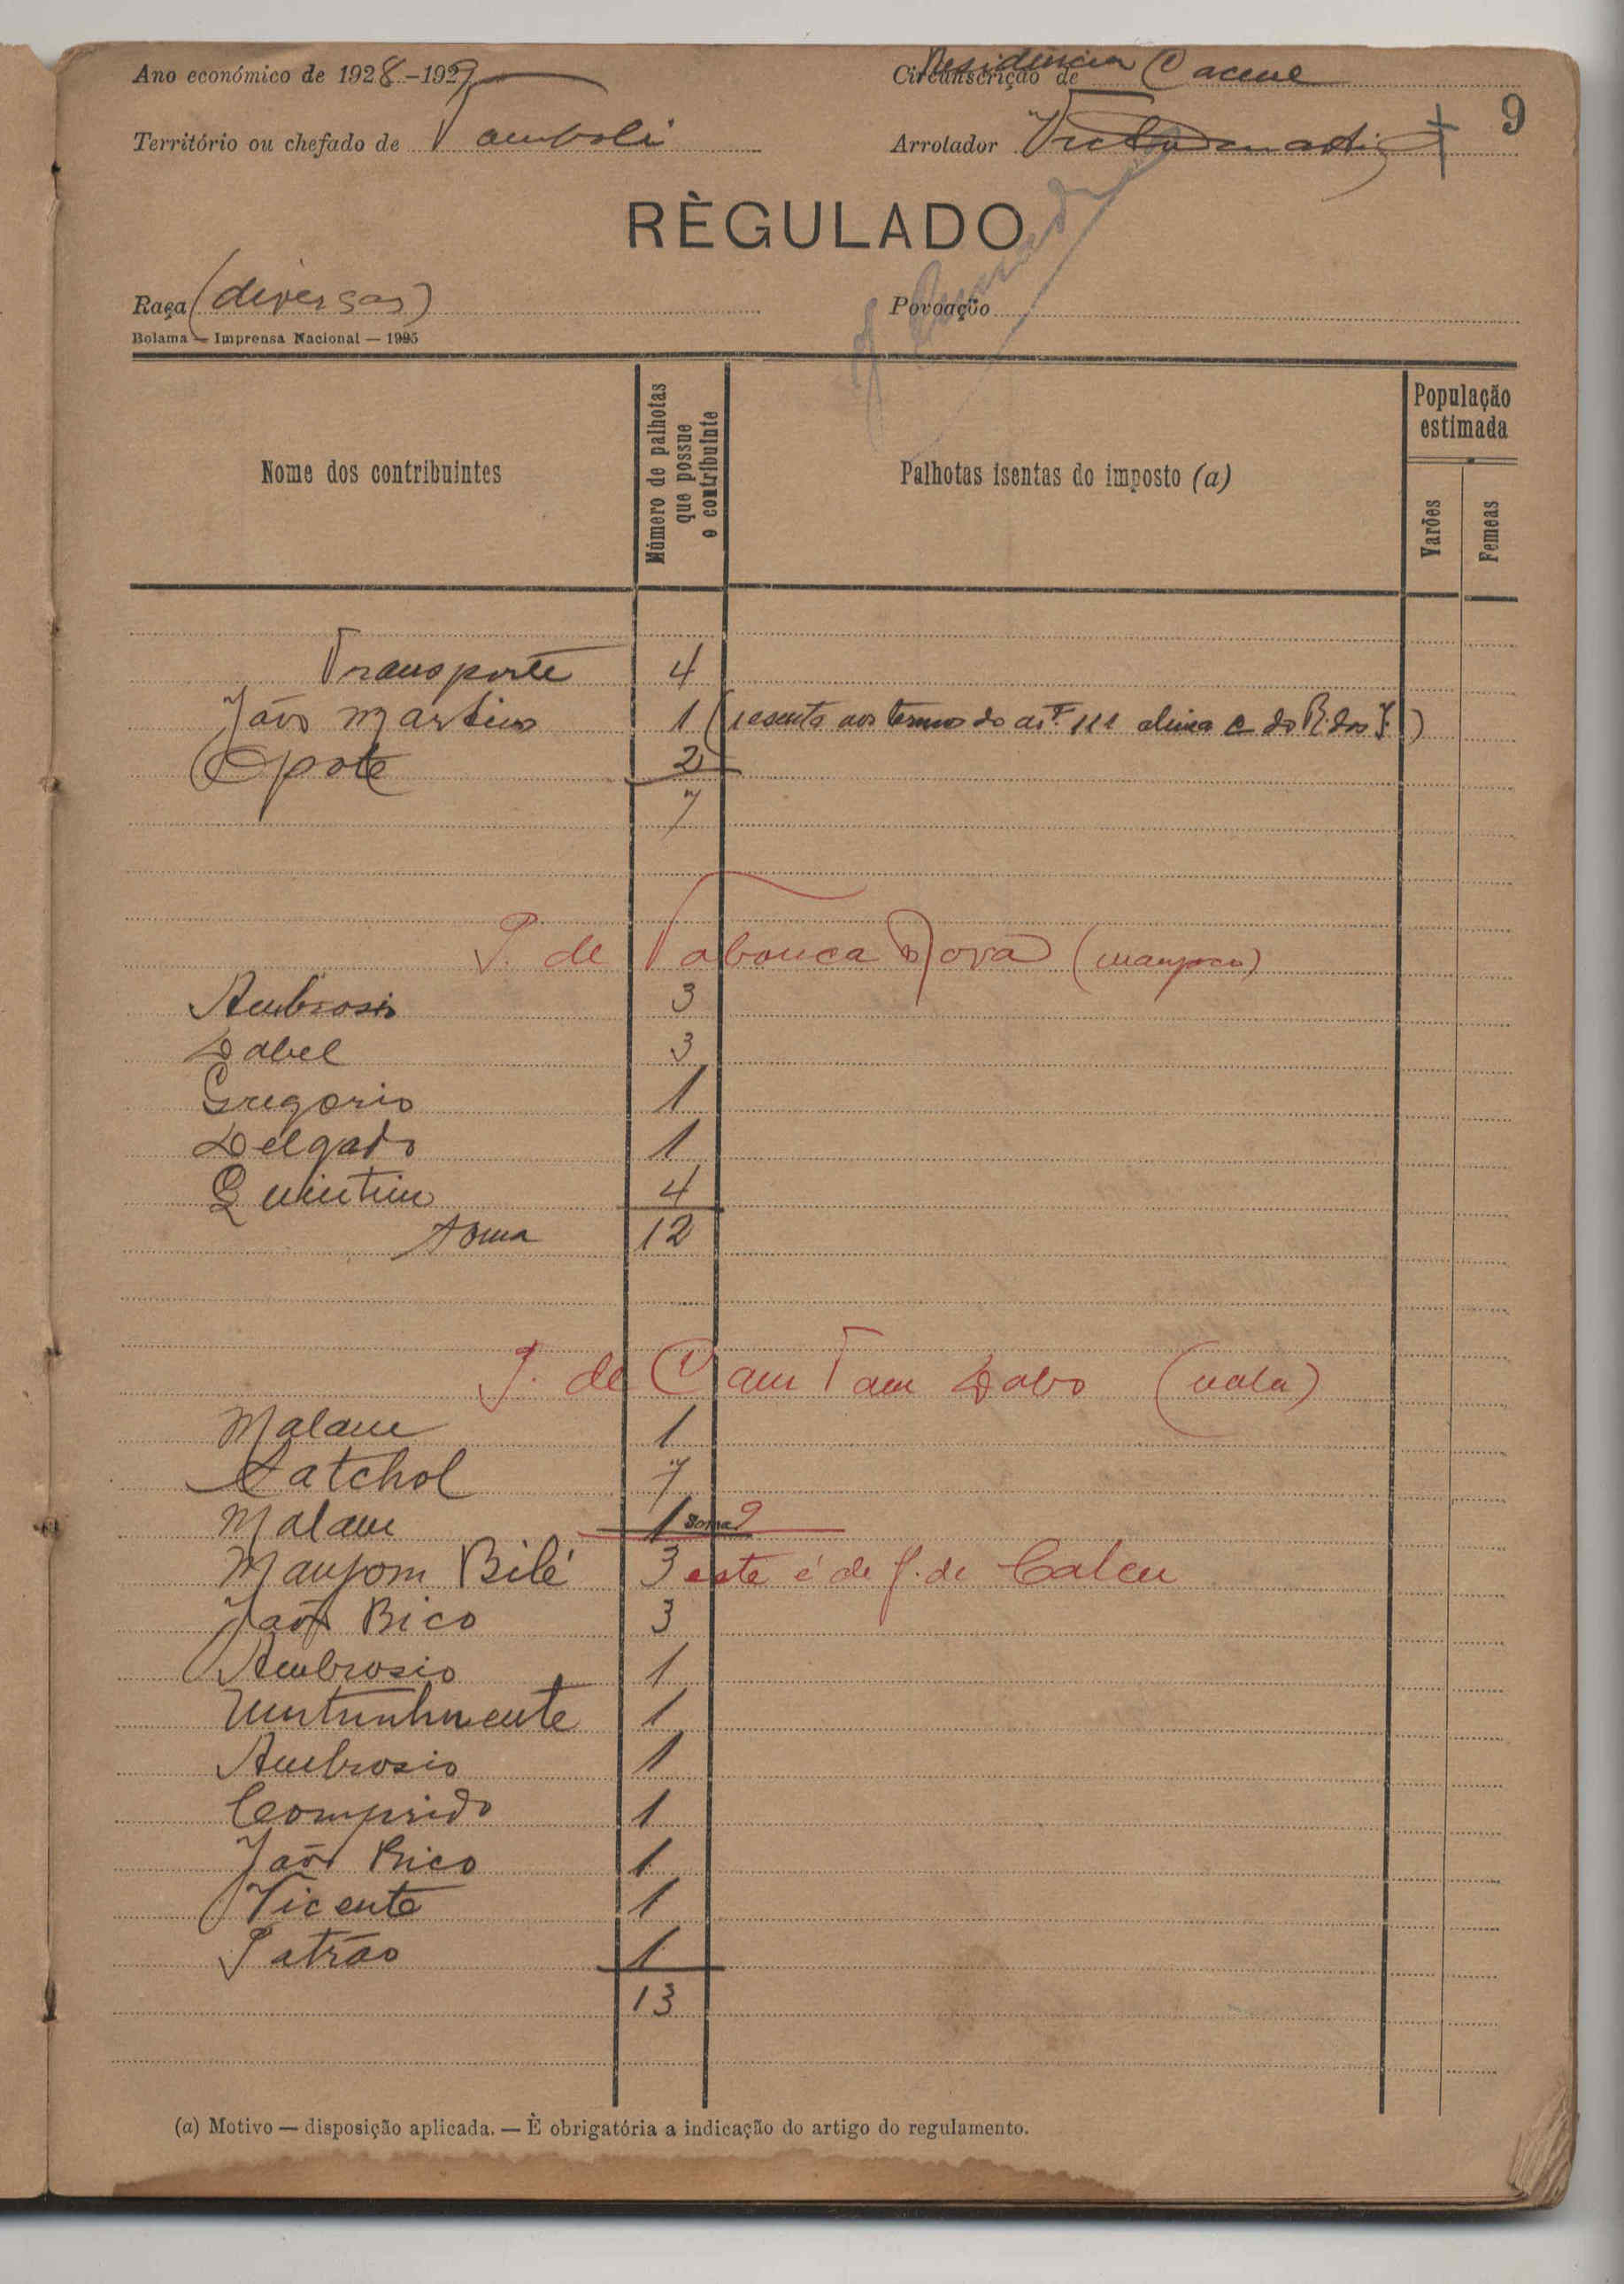 Ano económico de 1928-1929
Residencia Cacine
Circunscrição de
9
Território ou chefado de Tamboli
Arrolador
RÈGULADO
Raça (diversas)
Povoação
Bolama — Imprensa Nacional — 1925
Nome dos contribuintes
Número de palhotas que possue o contribuinte
Palhotas isentas do imposto (a)
População estimada
Varões
Femeas
Transporte 4
João Martins 1 (isento nos termos do artº 111 alinea c do R. dos I.)
Opote 2
7
P. de Tabanca Nova (manjaco)
Ambrosio 3
Dabel 3
Gregorio 1
Delgado 1
Quintim 4
Soma 12
P. de Cam Tam Dabo (nalu)
Malam 1
Latchol 7
Malam 1 Soma 9
Manjom Bilé 3 este é de P. de Caleu
João Bico 3
Ambrosio 1
1
Ambrosio 1
Comprido 1
João Bico 1
Vicente 1
Patrão 1
13
(a) Motivo — disposição aplicada. — È obrigatória a indicação do artigo do regulamento.